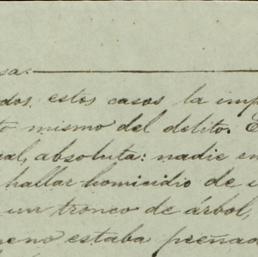 sa.
dos, estos casos la imp
to mismo del delito. E
al, absoluta: nadie en
hallar homicidio de
un tronco de árbol,
eno estaba preñad